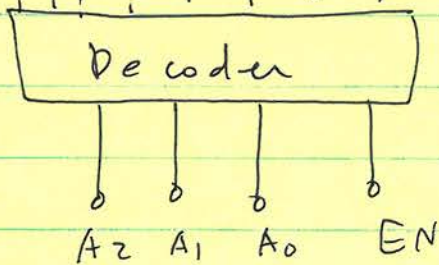 Decoder
A2 A1 A0 EN